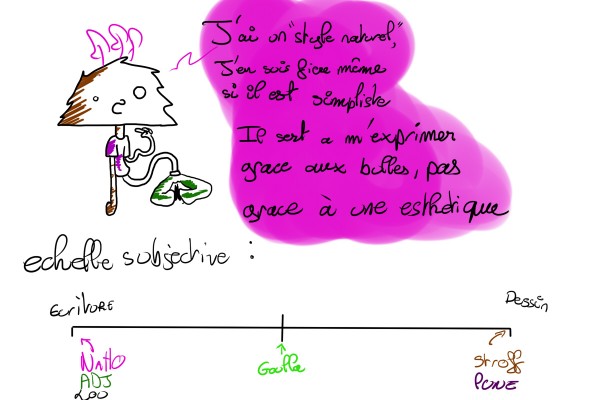 J'ai un "style naturel",
J'en suis fier même
si il est simpliste
Il sert a m'exprimer
grace aux bulles, pas
grace à une esthétique
echelle subjective :
Ecriture
Dessin
Natto
Goulla
Stroff
ADJ
PONE
Loo